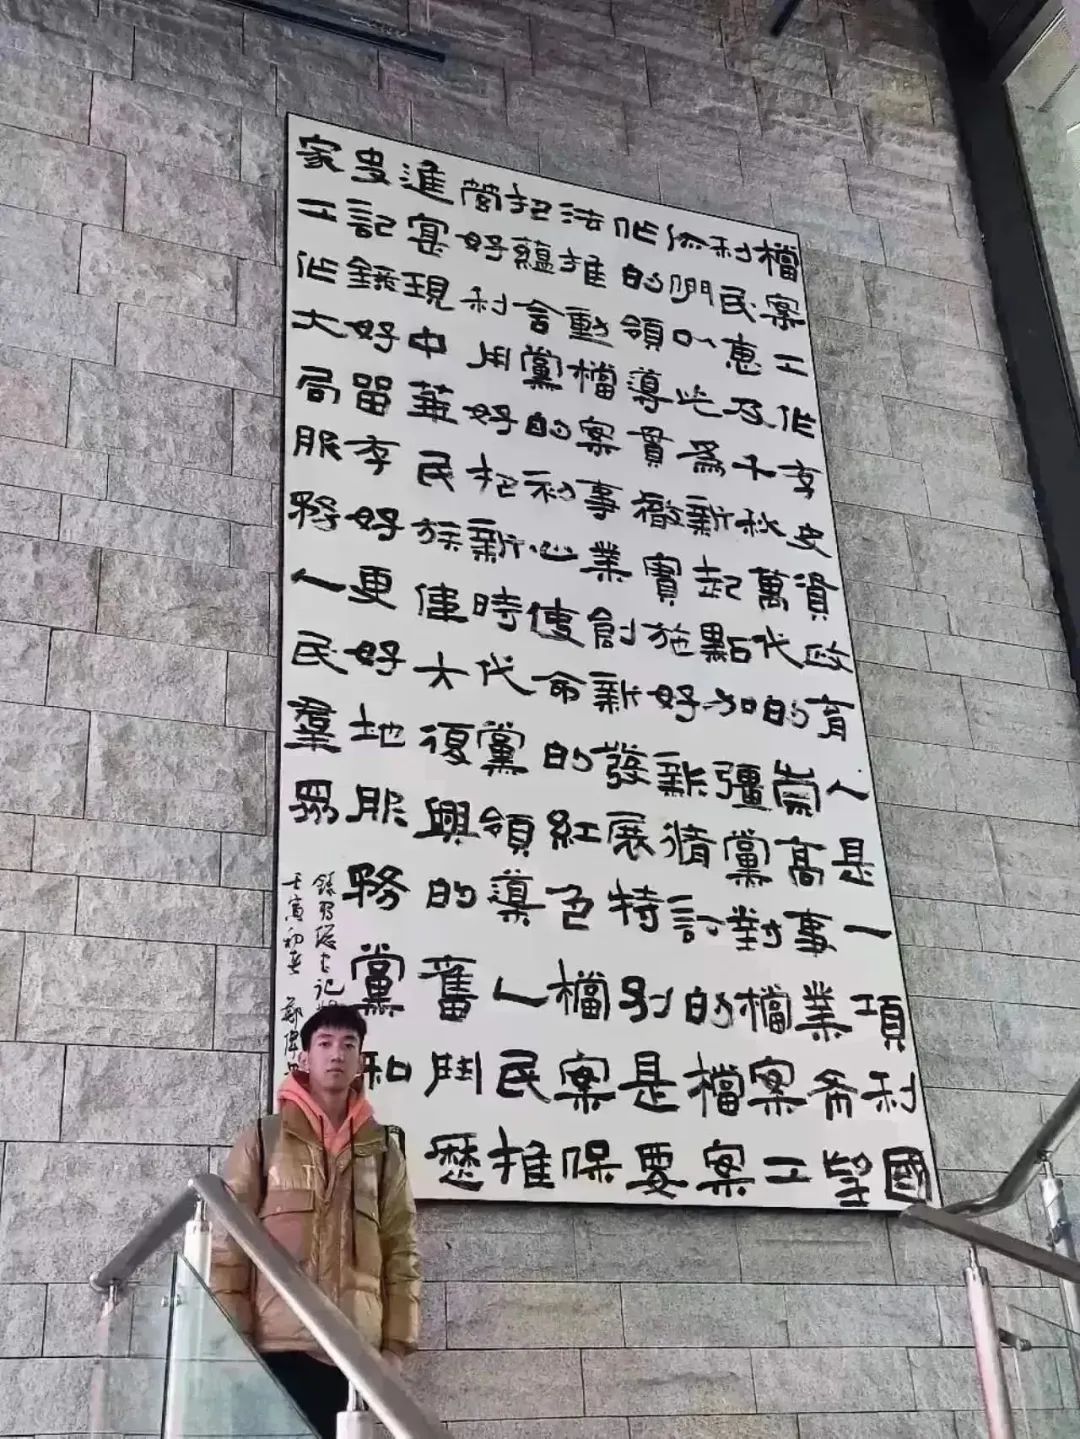 檔案工作存史資政育人是一項利國
利民惠及千秋萬代的崇高事業希望
你們以此為新起點加彊黨對檔案工
作的領導貫徹實施好新修訂的檔案
法推動檔案事業創新發展特別是要
把蘊含黨的初心使命的紅色檔案保
管好利用好把新時代黨領導人民推
進寔現中華民族偉大復興的奮鬥歷
史記錄好留存好更好地服務黨和
家工作大局服務人民羣眾
錄習總書記
壬寅初春 鄭偉